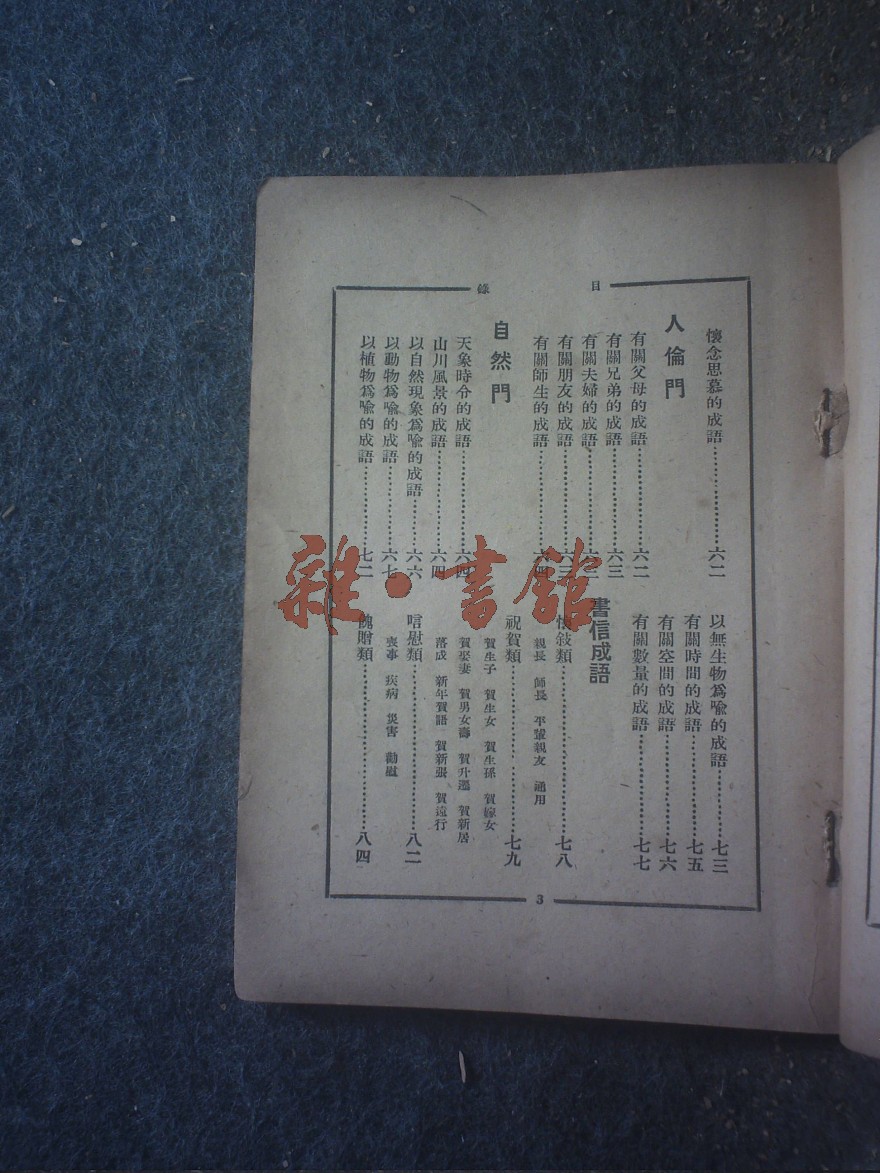 目錄
懷念思慕的成語……六二
人倫門
有關父母的成語……六二
有關兄弟的成語……六三
有關夫婦的成語……六三
有關朋友的成語……六三
有關師生的成語……六四
自然門
天象時令的成語……六四
山川風景的成語……六四
以自然現象爲喩的成語……六六
以動物爲喩的成語……六七
以植物爲喩的成語……七二
以無生物爲喩的成語……七三
有關時間的成語……七五
有關空間的成語……七六
有關數量的成語……七七
書信成語
敍類……七八
親長 師長 平輩親友 通用
祝賀類……七九
賀生子 賀生女 賀生孫 賀嫁女
賀娶妻 賀男女壽 賀升遷 賀新居
落成 新年賀語 賀新張 賀遠行
唁慰類……八二
喪事 疾病 災害 勸慰
餽贈類……八四
3
雜·書館